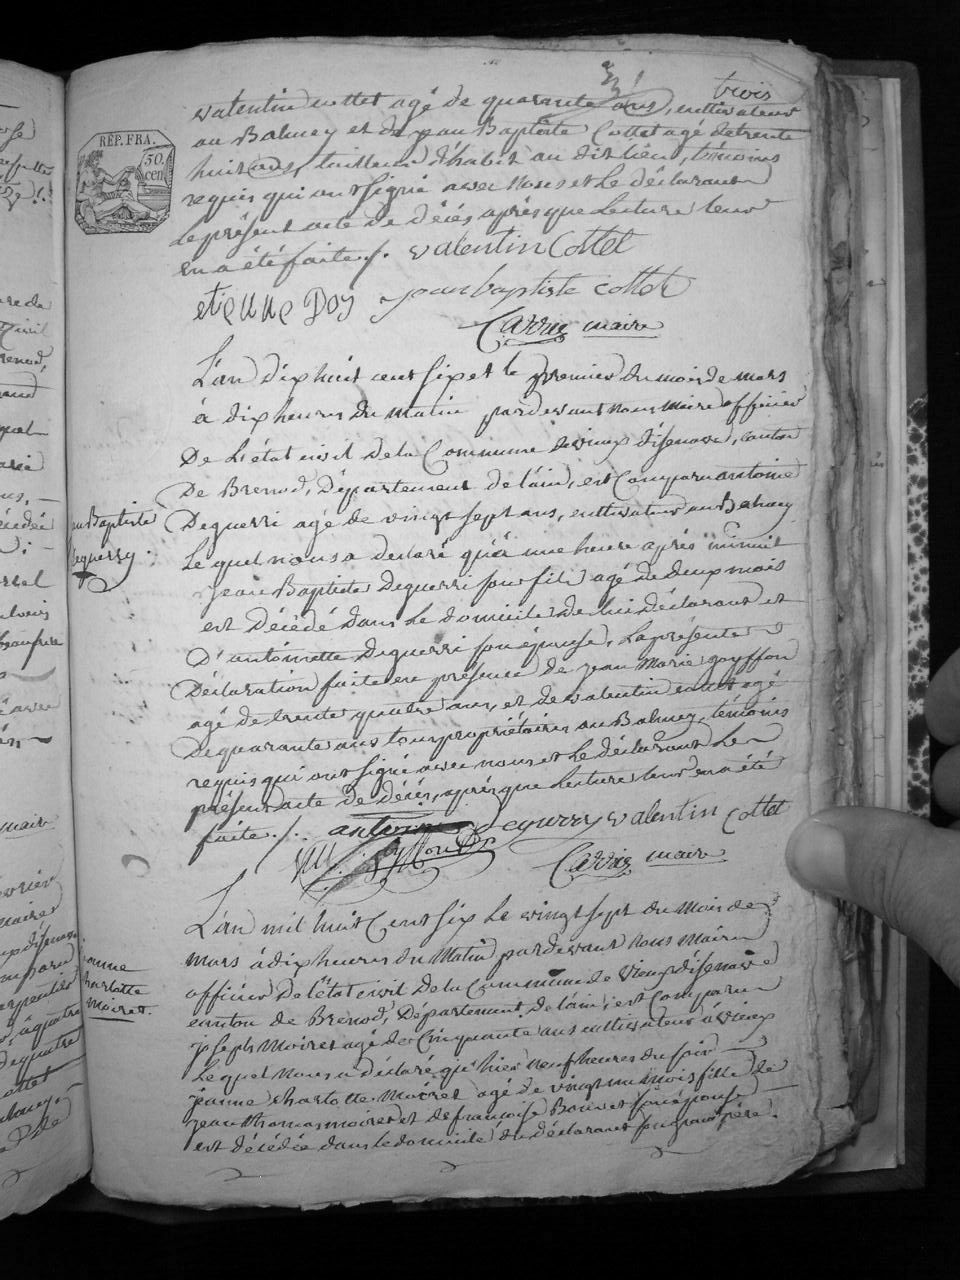 trois
valentin cottet agé de quarante ans, cultivateur
au Balmey et de jean Baptiste Cottet agé de trente
huit ans, tailleur d'habit au dit lieu, témoins
requis qui ont signé avec nous et le déclarant
le présent acte de décés après que lecture leur
en a été faite ./. valentin Cottet
etienne Doy jean baptiste cottet
Carrié maire
RÉP. FRA.
50.
cen.
L'an dix huit cent six et le premier du mois de mars
à dix heures du matin pardevant nous maire officier
De l'état civil de la Commune de vieux d'isenave, canton
De Brenod, Département de l'ain, est Comparu antoine
Deguerri agé de vingt sept ans, cultivateur au Balmey
Le quel nous a déclaré qu'à une heure après minuit
jean Baptiste Deguerri son fils agé de deux mois
est Décédé dans le domicile de lui déclarant et
D'antoinette Deguerri son épouse, la présente
Déclaration faite en présence de jean Marie goyffon
agé de trente quatre ans, et de valentin cottet agé
De quarante ans tous propriétaires au Balmey, témoins
requis qui ont signé avec nous et le déclarant le
présent acte de décés, après que lecture leur en a été
faite ./. antoine Deguerry valentin Cottet
Carrié maire
Baptiste
Deguerry.
L'an mil huit Cent six le vingt sept du mois de
mars à dix heures du matin pardevant nous Maire
officier De l'état civil De la Commune de vieux d'isenave
canton de Brenod, Département de l'ain, est Comparu
joseph Moiret agé de Cinquante ans cultivateur à vieux
Le quel nous a déclaré qu'hier neuf heures du soir
jeanne charlotte Moiret agé de vingt un mois fille de
jean thomas moiret et de françoise Bonnet son épouse
est décédée dans le domicile du déclarant son grand père.
jeanne
charlotte
Moiret.